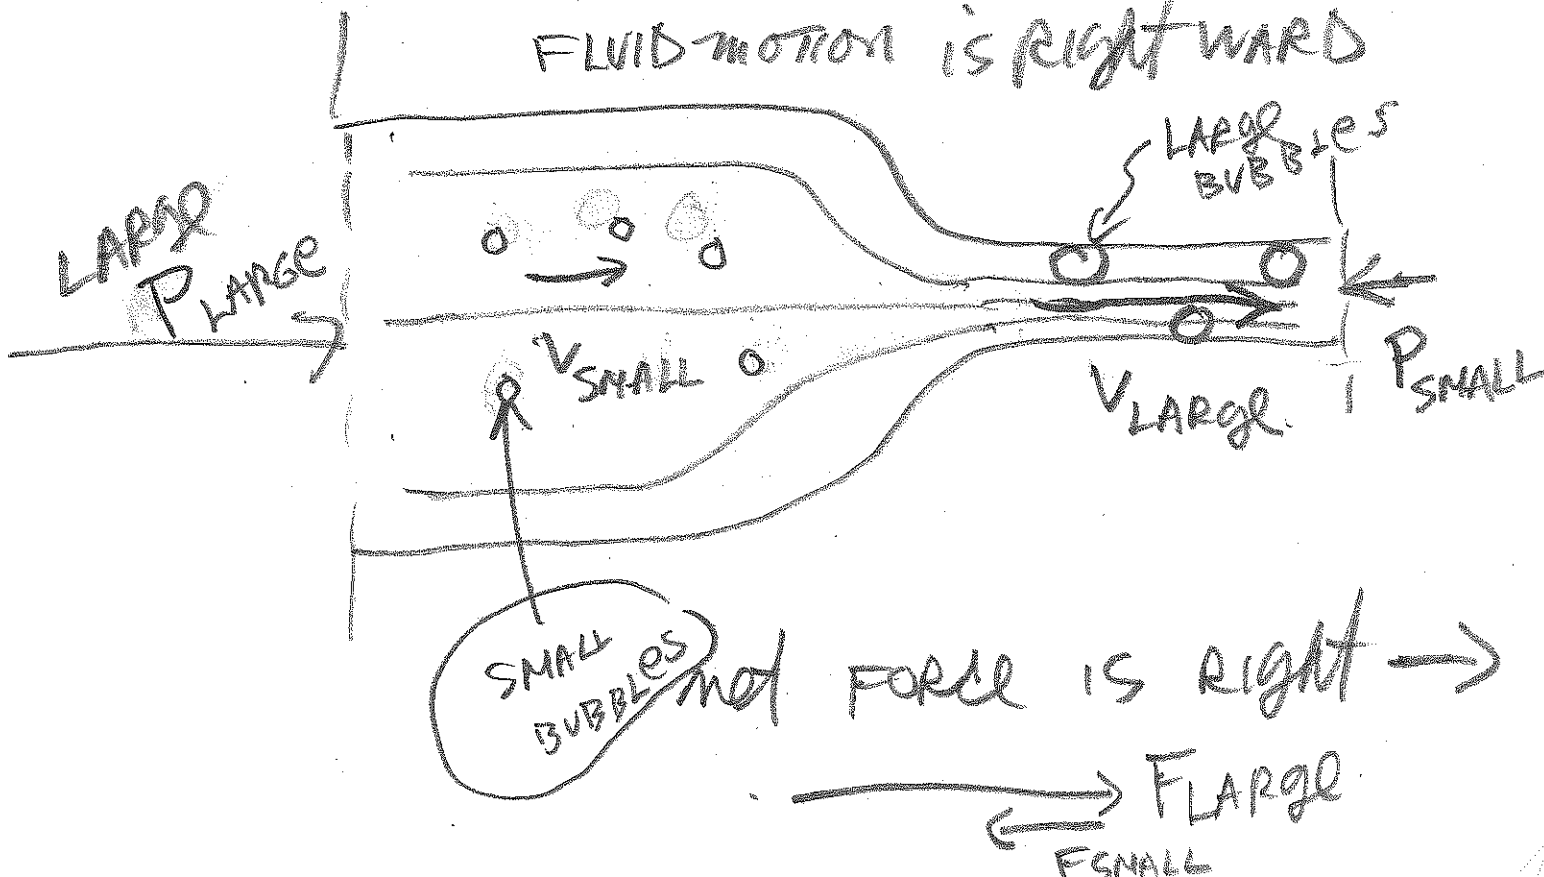 FLUID motion is RigHt WARD
LARge
BUBBles
LARge
PLARGe
VSMALL
VLARge.
PSMALL
SMALL
BUBBLes
net FORCe is Right →
FLARge
FSMALL